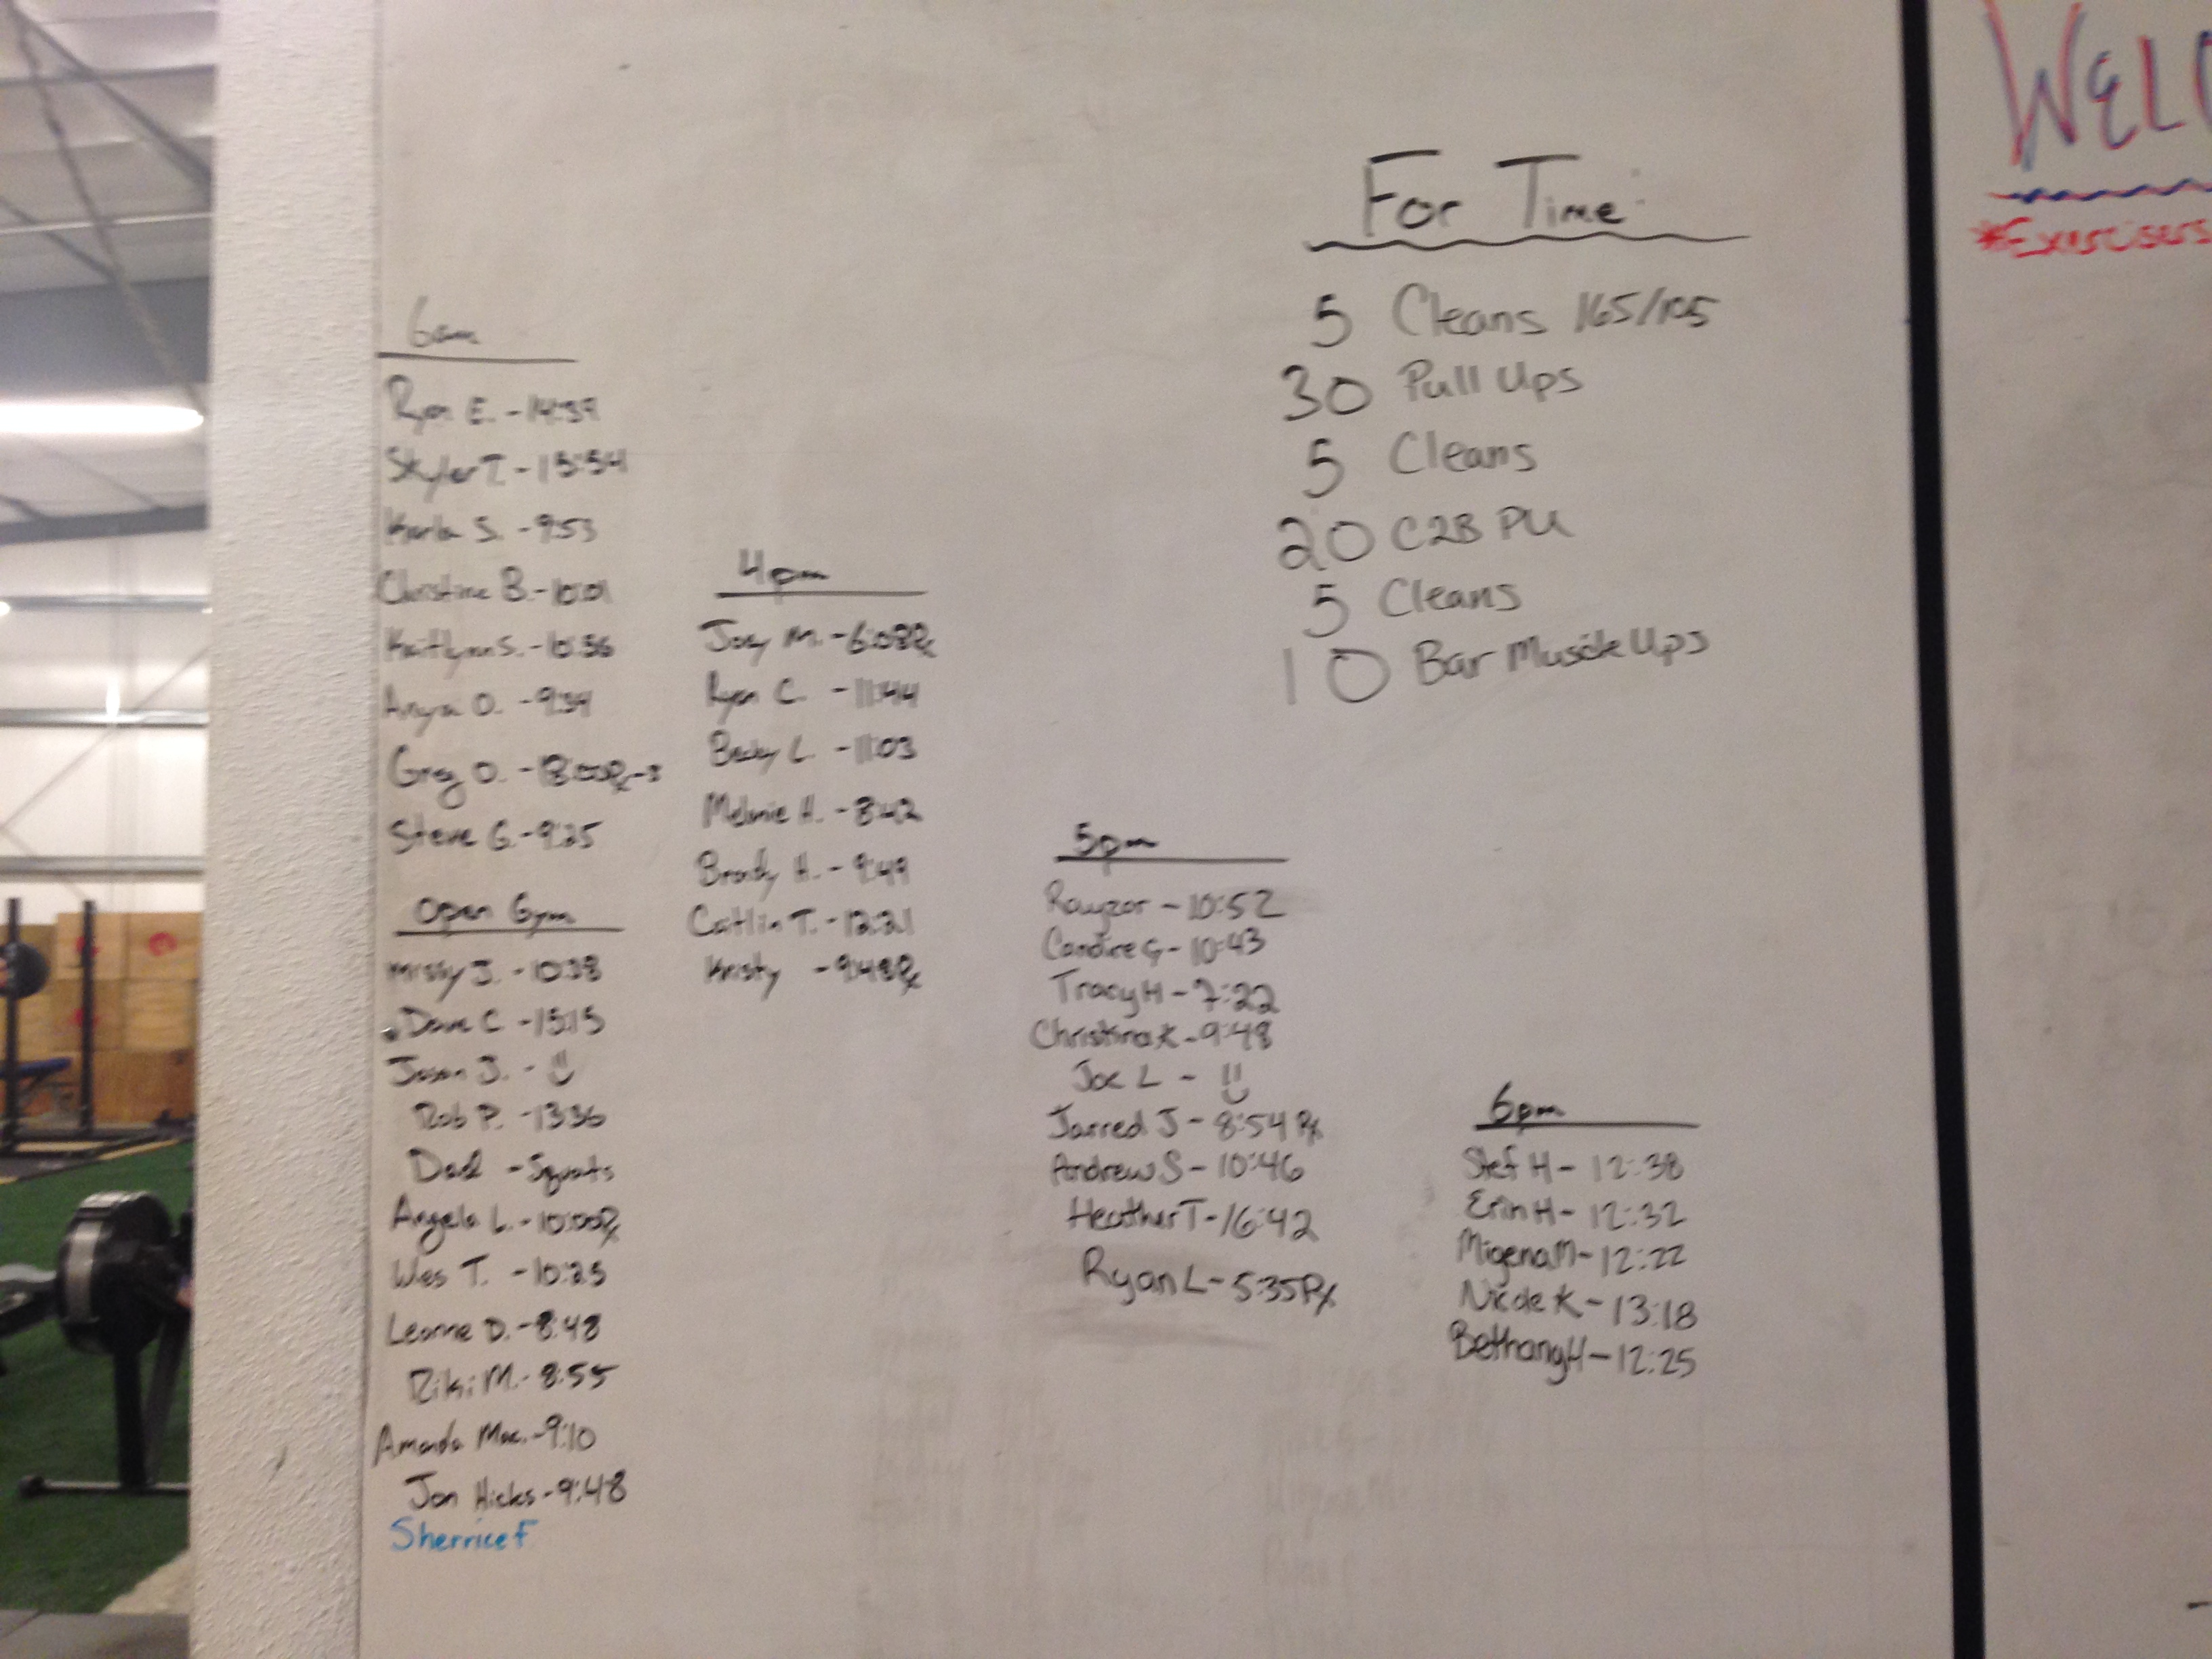 WELC
*Exercisers
For Time:
5 Cleans 165/105
30 Pull Ups
5 Cleans
20 C2B PU
5 Cleans
10 Bar Muscle Ups
6am
Ryan E. - 14:39
Skyler T. - 15:54
Karla S. - 9:53
Christine B. - 10:01
Kaitlynn S. - 10:36
Anya O. - 9:34
Greg O. -
Steve G. - 9:25
Open Gym
Missy J. - 10:38
Dave C - 15:15
Jason J. - :)
Rob P. - 13:36
- Squats
Angela L. - 10:00Rx
Wes T. - 10:25
Leanne D. - 8:48
Riki M. - 8:55
Amanda Mac. - 9:10
Jon Hicks - 9:48
Sherrice F
4pm
Joey M. - 6:08Rx
Ryan C. - 11:44
Becky L. - 11:03
Melanie H. - 8:42
Brady H. - 9:49
Caitlin T. - 12:21
Kristy - 9:48Rx
5pm
Rouzor - 10:52
Candice G - 10:43
Tracy H - 7:22
Christina K - 9:48
Joe L - :)
Jarred J - 8:54 Rx
Andrew S - 10:46
Heather T - 16:42
Ryan L - 5:35 Rx
6pm
Stef H - 12:38
Erin H - 12:32
Migena M - 12:22
Nicole K - 13:18
Bethany H - 12:25